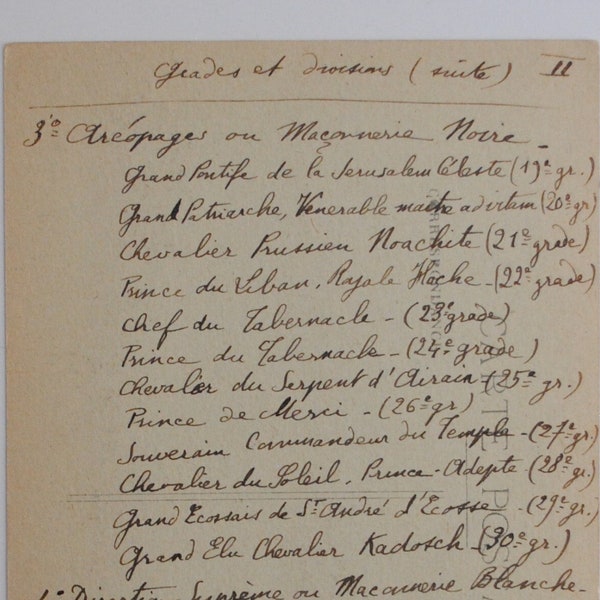 Grades et divisions (suite) II
3º Aréopages ou Maçonnerie Noire -
Grand Pontife de la Jerusalem Céleste (19e gr.)
Grand Patriarche, Venerable maitre ad vitam (20e gr)
Chevalier Prussien Noachite (21e grade)
Prince du Liban, Royale Hache - (22e grade)
Chef du Tabernacle - (23e grade)
Prince du Tabernacle - (24e grade)
Chevalier du Serpent d'Airain (25e gr.)
Prince de Merci - (26e gr)
Souverain Commandeur du Temple - (27e gr)
Chevalier du Soleil, Prince-Adepte (28e gr.)
Grand Ecossais de St André d'Ecosse - (29e gr.)
Grand Elu Chevalier Kadosch - (30e gr.)
4º Direction Suprème ou Maconnerie Blanche-